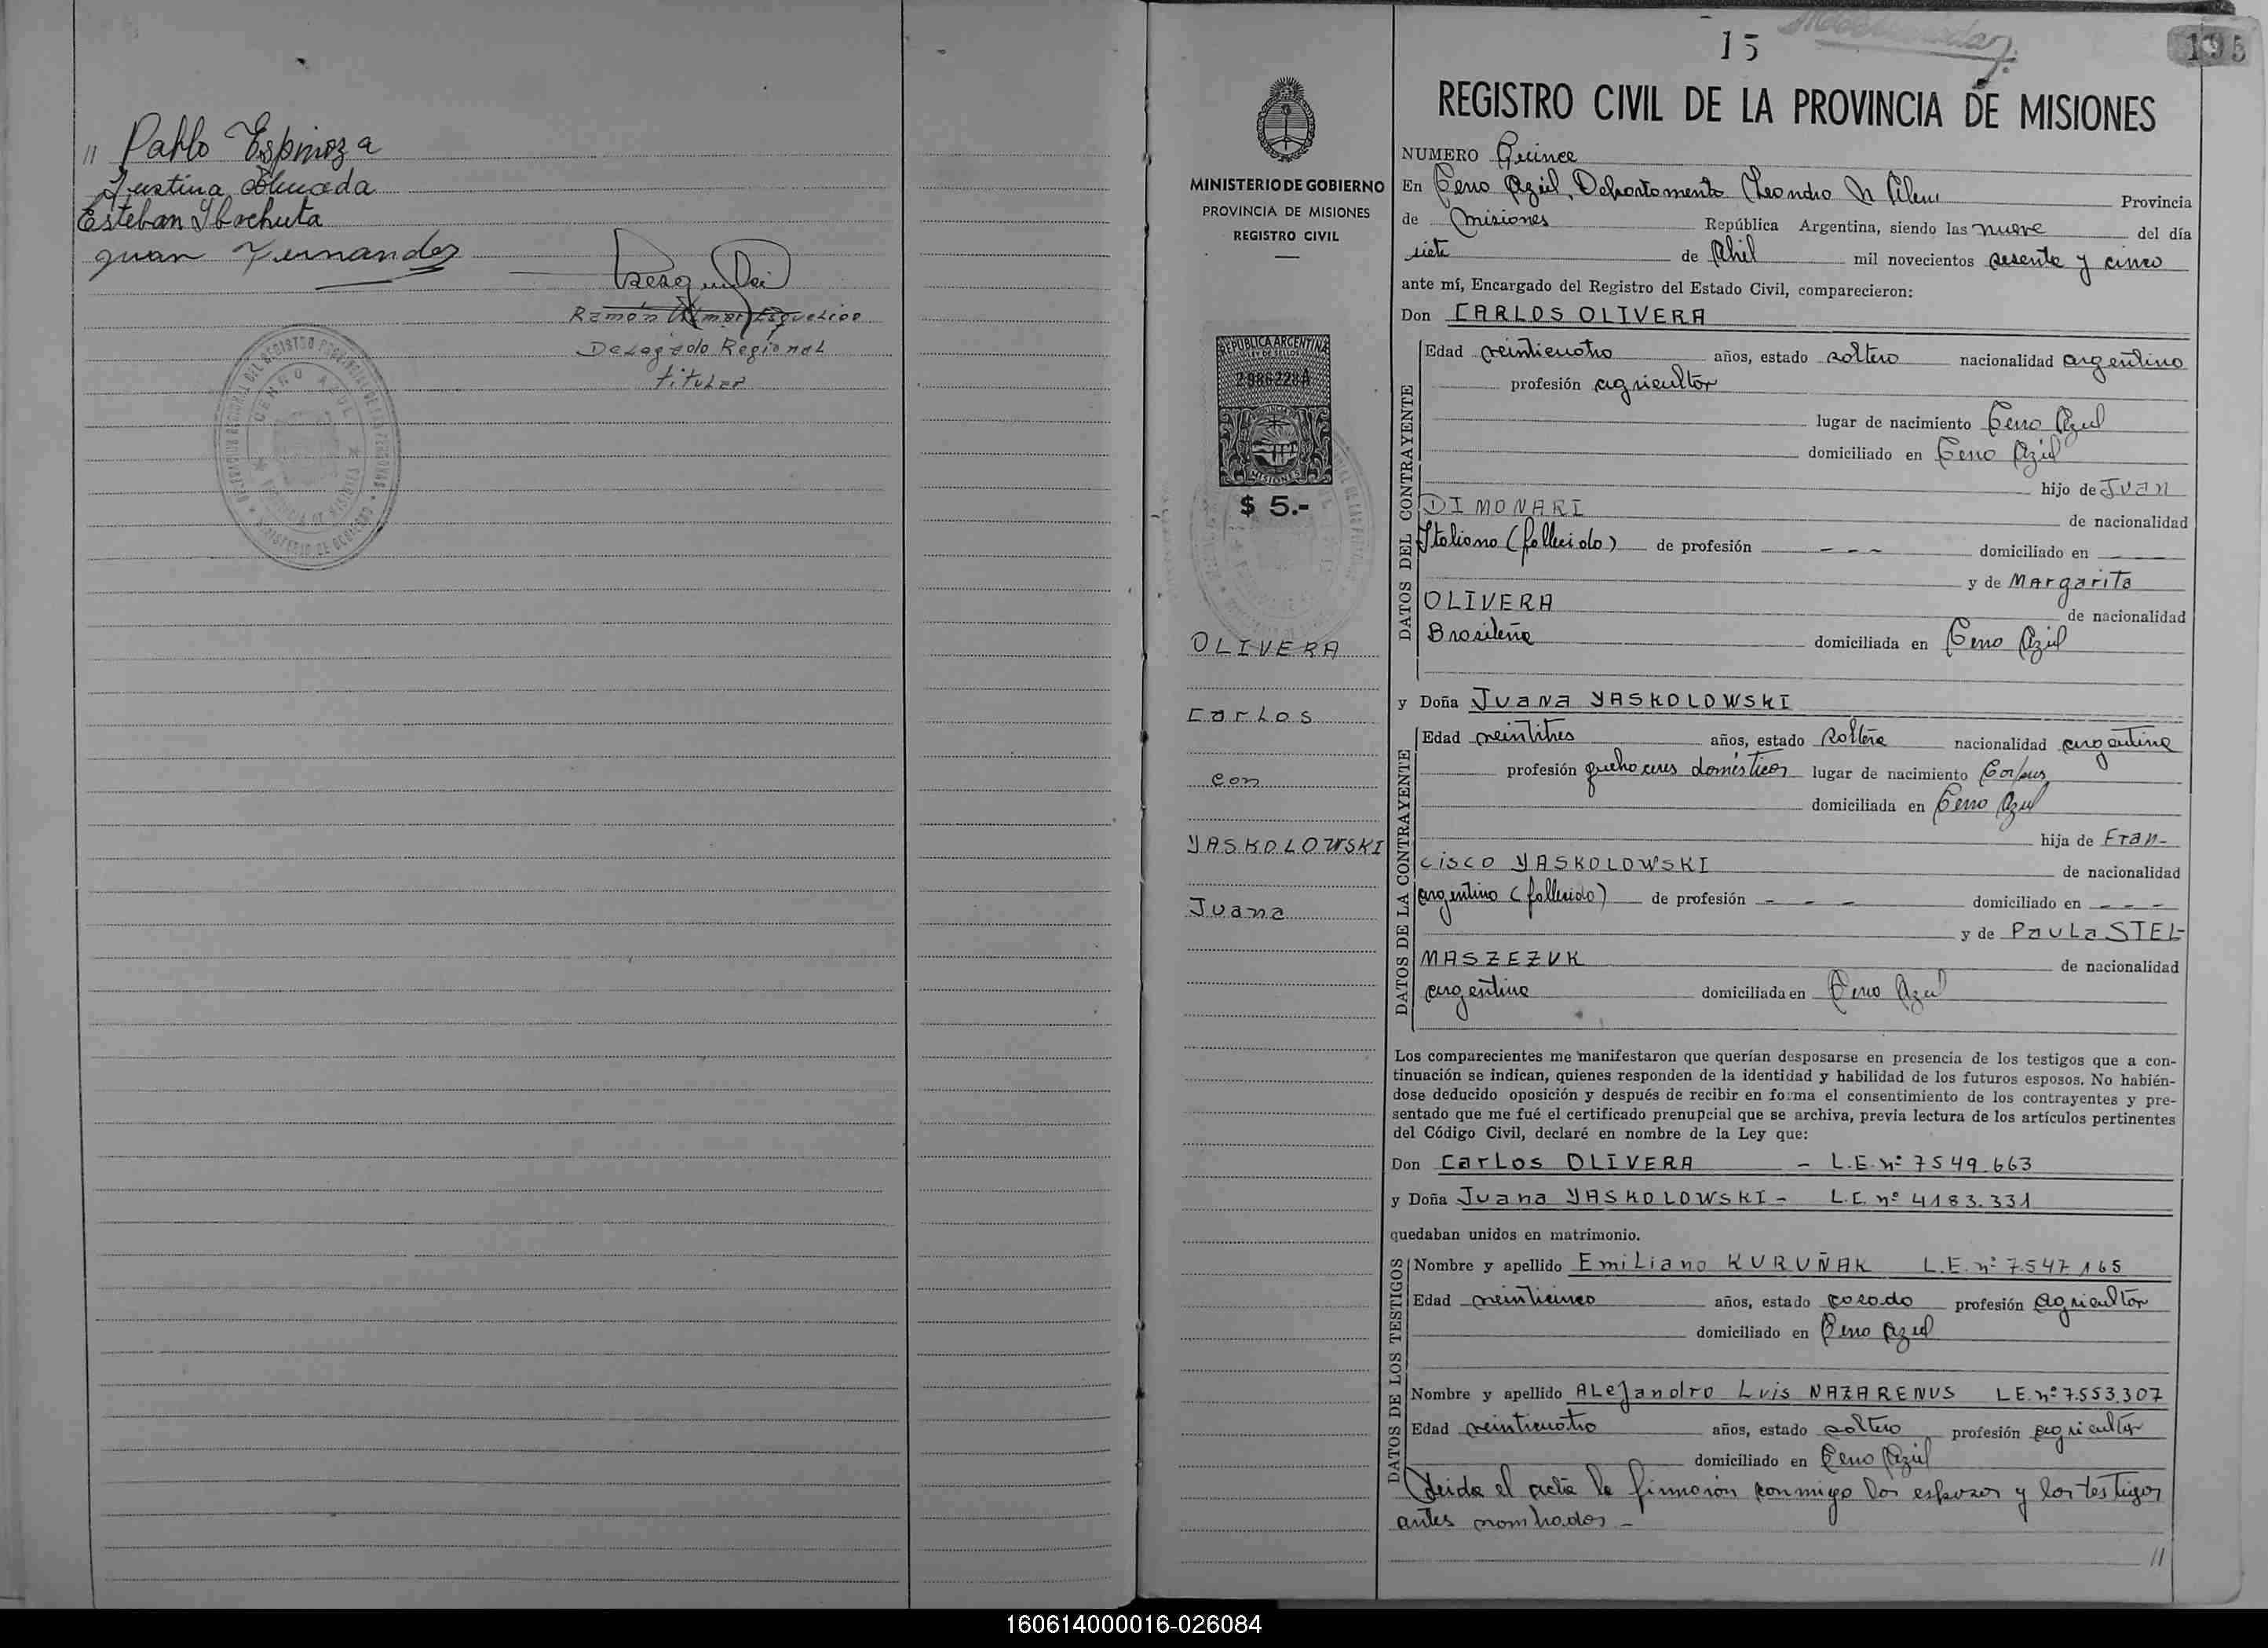 // Pablo Espinoza
Justina
Esteban
Juan Fernandez
Ramón
Delegado Regional
titular
CERRO AZUL
15
195
REGISTRO CIVIL DE LA PROVINCIA DE MISIONES
MINISTERIO DE GOBIERNO
PROVINCIA DE MISIONES
REGISTRO CIVIL
REPUBLICA ARGENTINA
LEY DE SELLOS
2986228A
MISIONES
$ 5.-
OLIVERA
Carlos
con
YASKOLOWSKI
Juana
NUMERO Quince
En Cerro Azul, Departamento Leandro N Alem Provincia
de Misiones República Argentina, siendo las nueve del día
siete de Abril mil novecientos sesenta y cinco
ante mí, Encargado del Registro del Estado Civil, comparecieron:
Don CARLOS OLIVERA
DATOS DEL CONTRAYENTE
Edad veinticuatro años, estado soltero nacionalidad argentino
profesión agricultor
lugar de nacimiento Cerro Azul
domiciliado en Cerro Azul
hijo de Juan
DIMONARI de nacionalidad
Italiano (fallecido) de profesión - - - domiciliado en - - -
y de Margarita
OLIVERA de nacionalidad
Brasileña domiciliada en Cerro Azul
y Doña Juana YASKOLOWSKI
DATOS DE LA CONTRAYENTE
Edad veintitres años, estado soltera nacionalidad argentina
profesión quehaceres domésticos lugar de nacimiento Corpus
domiciliada en Cerro Azul
hija de Fran-
cisco YASKOLOWSKI de nacionalidad
argentino (fallecido) de profesión - - - domiciliado en - - -
y de Paula STEL-
MASZEZUK de nacionalidad
argentina domiciliada en Cerro Azul
Los comparecientes me manifestaron que querían desposarse en presencia de los testigos que a con-
tinuación se indican, quienes responden de la identidad y habilidad de los futuros esposos. No habién-
dose deducido oposición y después de recibir en forma el consentimiento de los contrayentes y pre-
sentado que me fué el certificado prenupcial que se archiva, previa lectura de los artículos pertinentes
del Código Civil, declaré en nombre de la Ley que:
Don Carlos OLIVERA - L.E. nº 7549.663
y Doña Juana YASKOLOWSKI - L.C. nº 4183.331
quedaban unidos en matrimonio.
DATOS DE LOS TESTIGOS
Nombre y apellido Emiliano KURUÑAK L.E. nº 7.547 165
Edad veinticinco años, estado casado profesión agricultor
domiciliado en Cerro Azul
Nombre y apellido Alejandro Luis NAZARENUS L.E. nº 7.553.307
Edad veinticuatro años, estado soltero profesión agricultor
domiciliado en Cerro Azul
Leida el acta la firmaron conmigo los esposos y los testigos
antes nombrados -
//
160614000016-026084